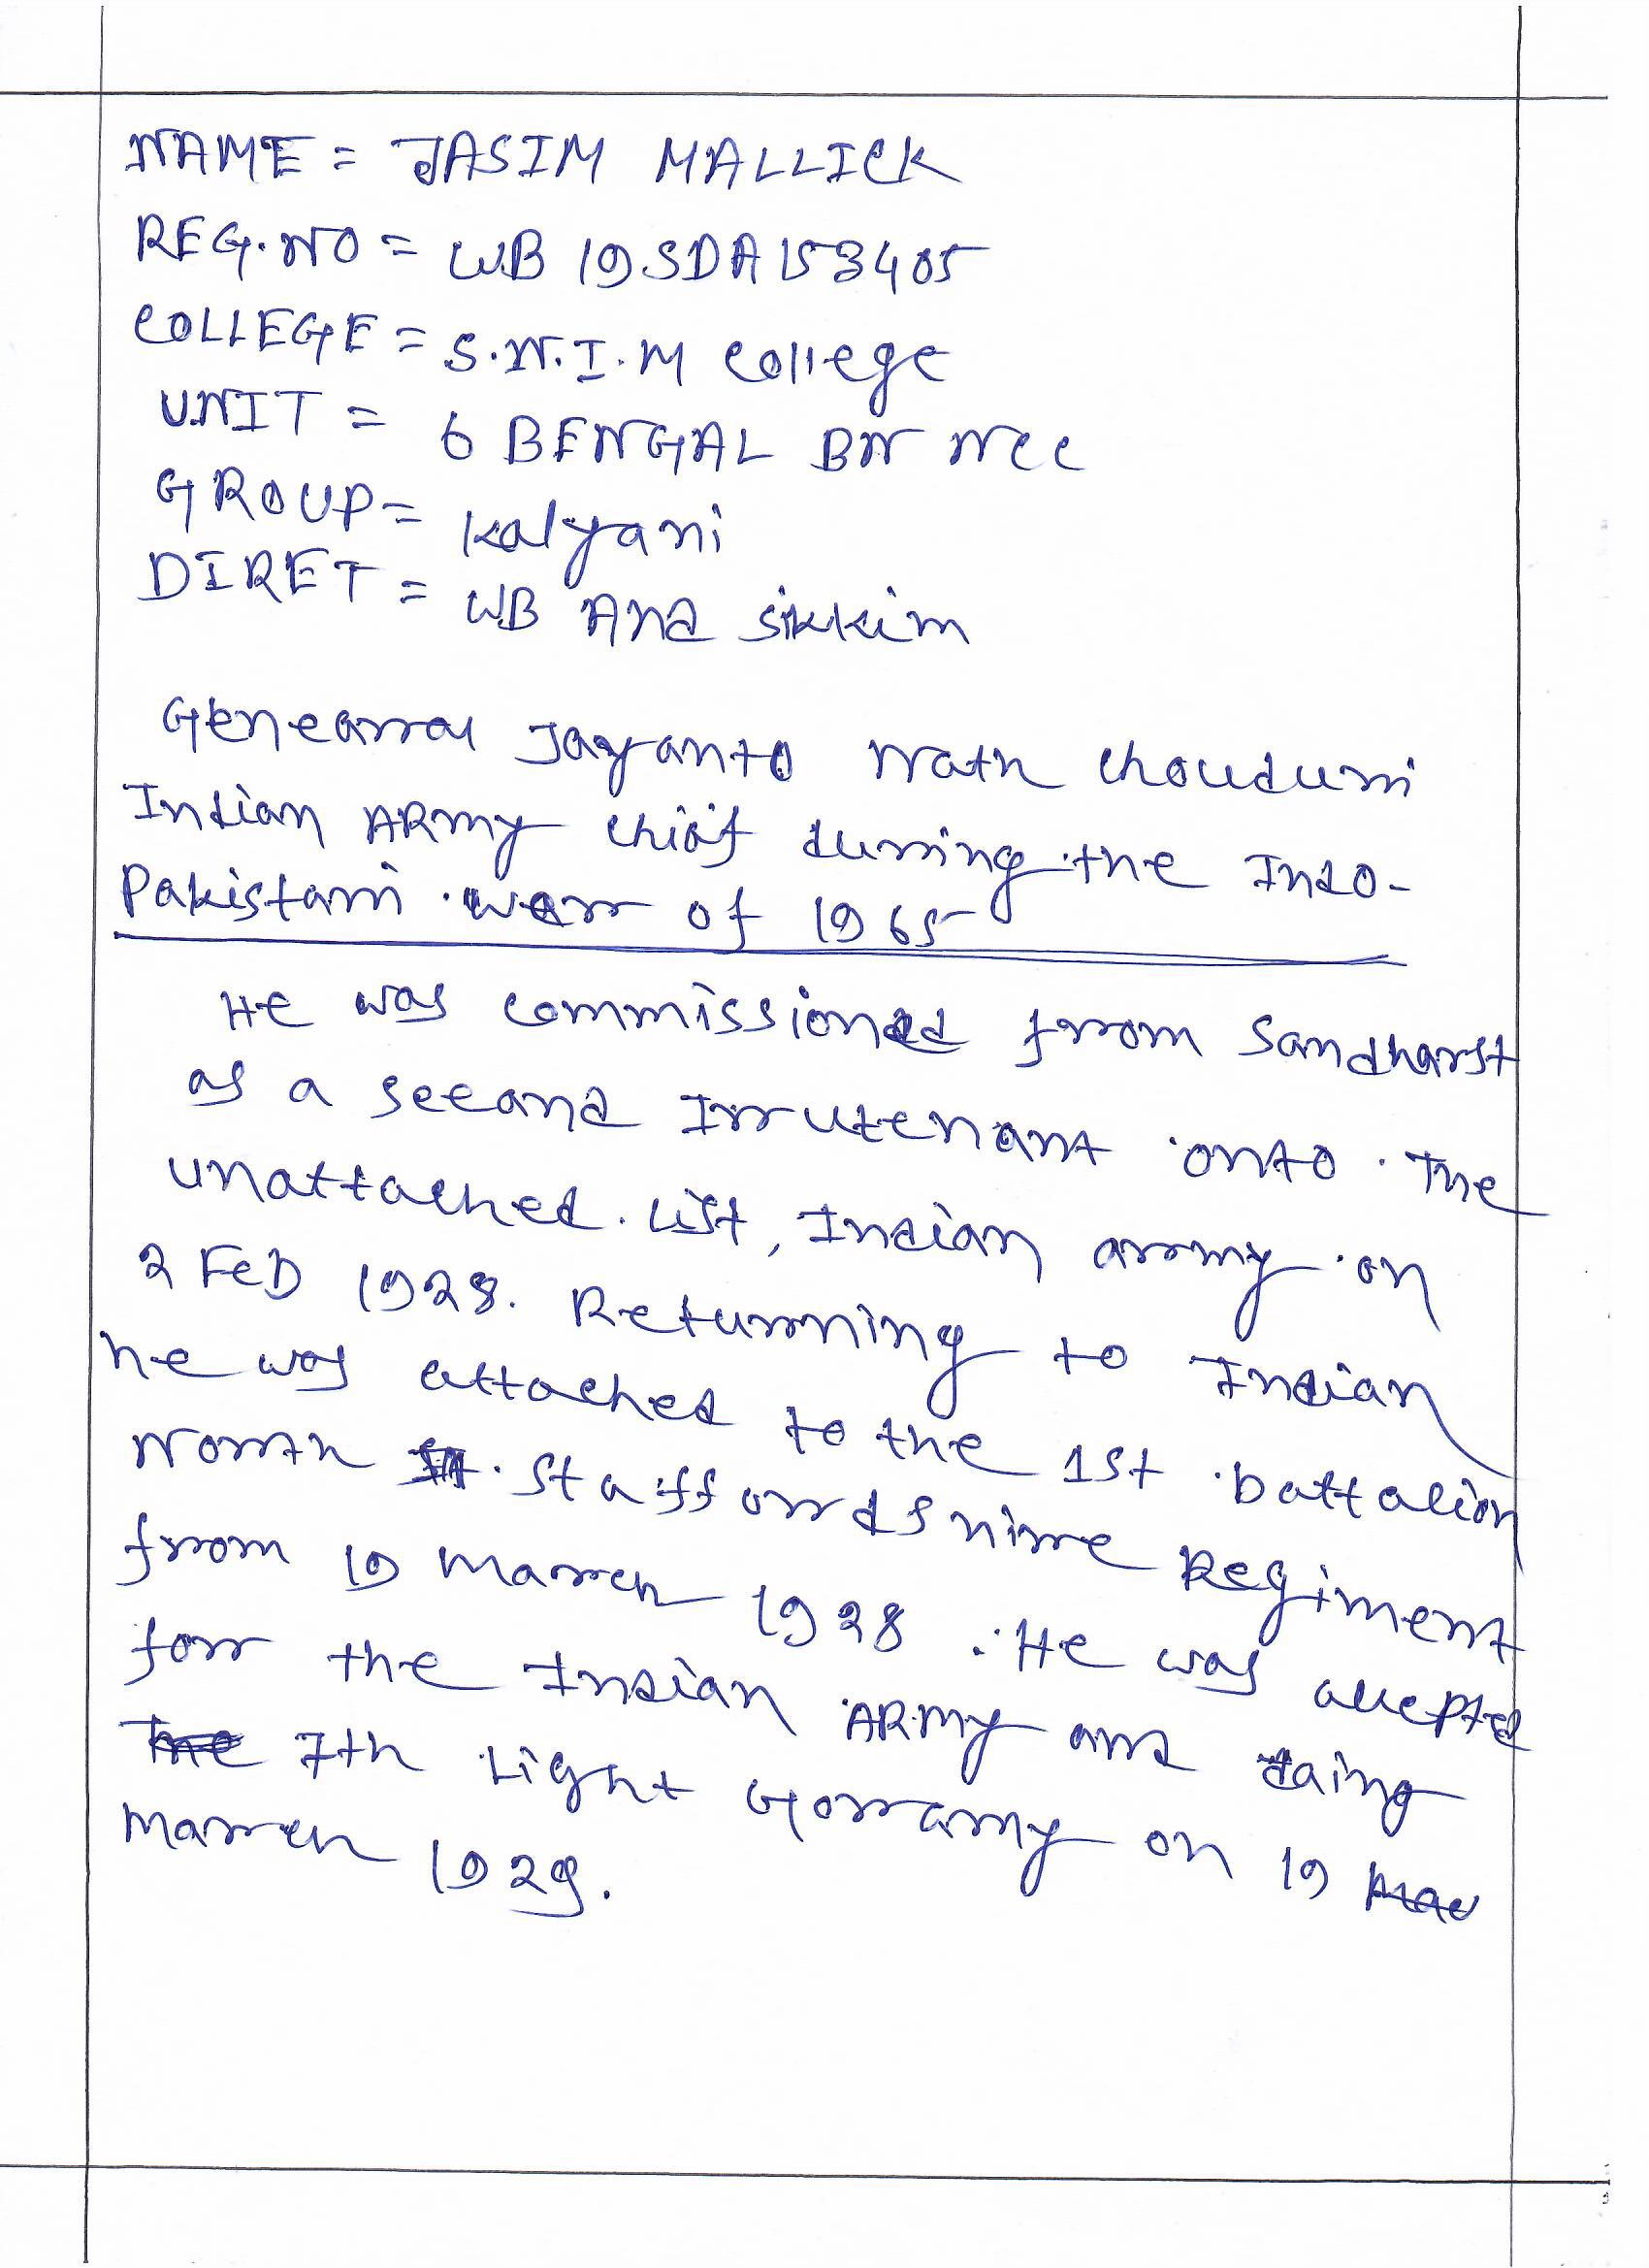 NAME = JASIM MALLICK
REG.NO = WB 19 SDA 153405
COLLEGE = S.N.I.M College
UNIT = 6 BENGAL BN NCC
GROUP = Kalyani
DIRET = WB And Sikkim
Genearral Jayanto Nath Choudurri
Indian ARmy chief durring the Indo-
Pakistani war of 1965
He was commissioned from Sandharst
as a second Irrutenant onto The
unattached. List, Indian army on
2 FeB 1928. Returning to Indian
he was attached to the 1st battalion
North Staffordshire Regiment
from 19 March 1928. He was accepted
for the Indian ARMY and
7th Light on 19
March 1929.